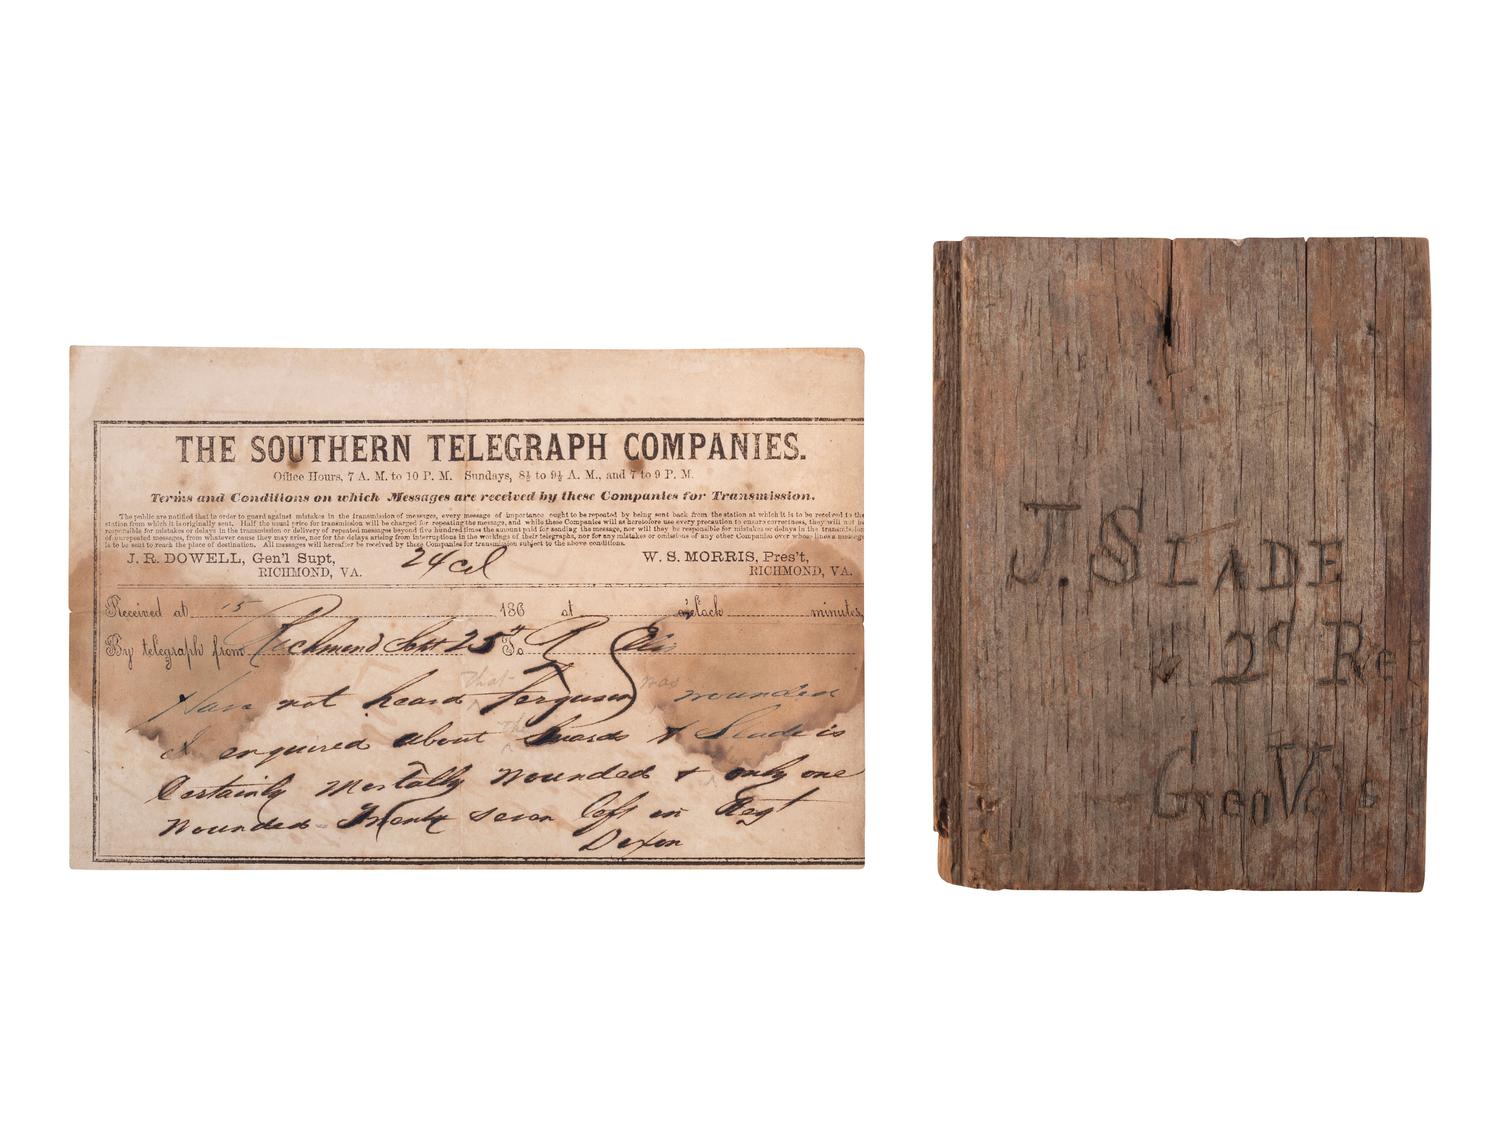 THE SOUTHERN TELEGRAPH COMPANIES.
Office Hours, 7 A. M. to 10 P. M. Sundays, 8½ to 9½ A. M., and 7 to 9 P. M.
Terms and Conditions on which Messages are received by these Companies for Transmission.
The public are notified that in order to guard against mistakes in the transmission of messages, every message of importance ought to be repeated by being sent back from the station at which it is to be received to the
station from which it is originally sent. Half the usual price for transmission will be charged for repeating the message, and while these Companies will as heretofore use every precaution to ensure correctness, they will not be
responsible for mistakes or delays in the transmission or delivery of repeated messages beyond five hundred times the amount paid for sending the message, nor will they be responsible for mistakes or delays in the transmission
of unrepeated messages, from whatever cause they may arise, nor for the delays arising from interruptions in the workings of their telegraphs, nor for any mistakes or omissions of any other Companies over whose lines a message
is to be sent to reach the place of destination. All messages will hereafter be received by these Companies for transmission subject to the above conditions.
J. R. DOWELL, Gen'l Supt, 24 col W. S. MORRIS, Pres't,
RICHMOND, VA. RICHMOND, VA.
Received at 186 at o'clock minutes,
By telegraph from Richmond Sept 25th To R Ellis
Have not heard that Ferguson was wounded
I enquired about & Slade is
Certainly Mortally Wounded & only one
Wounded Twenty seven left in Regt
Dixon
J. SLADE
2d Ret
Geo Vols